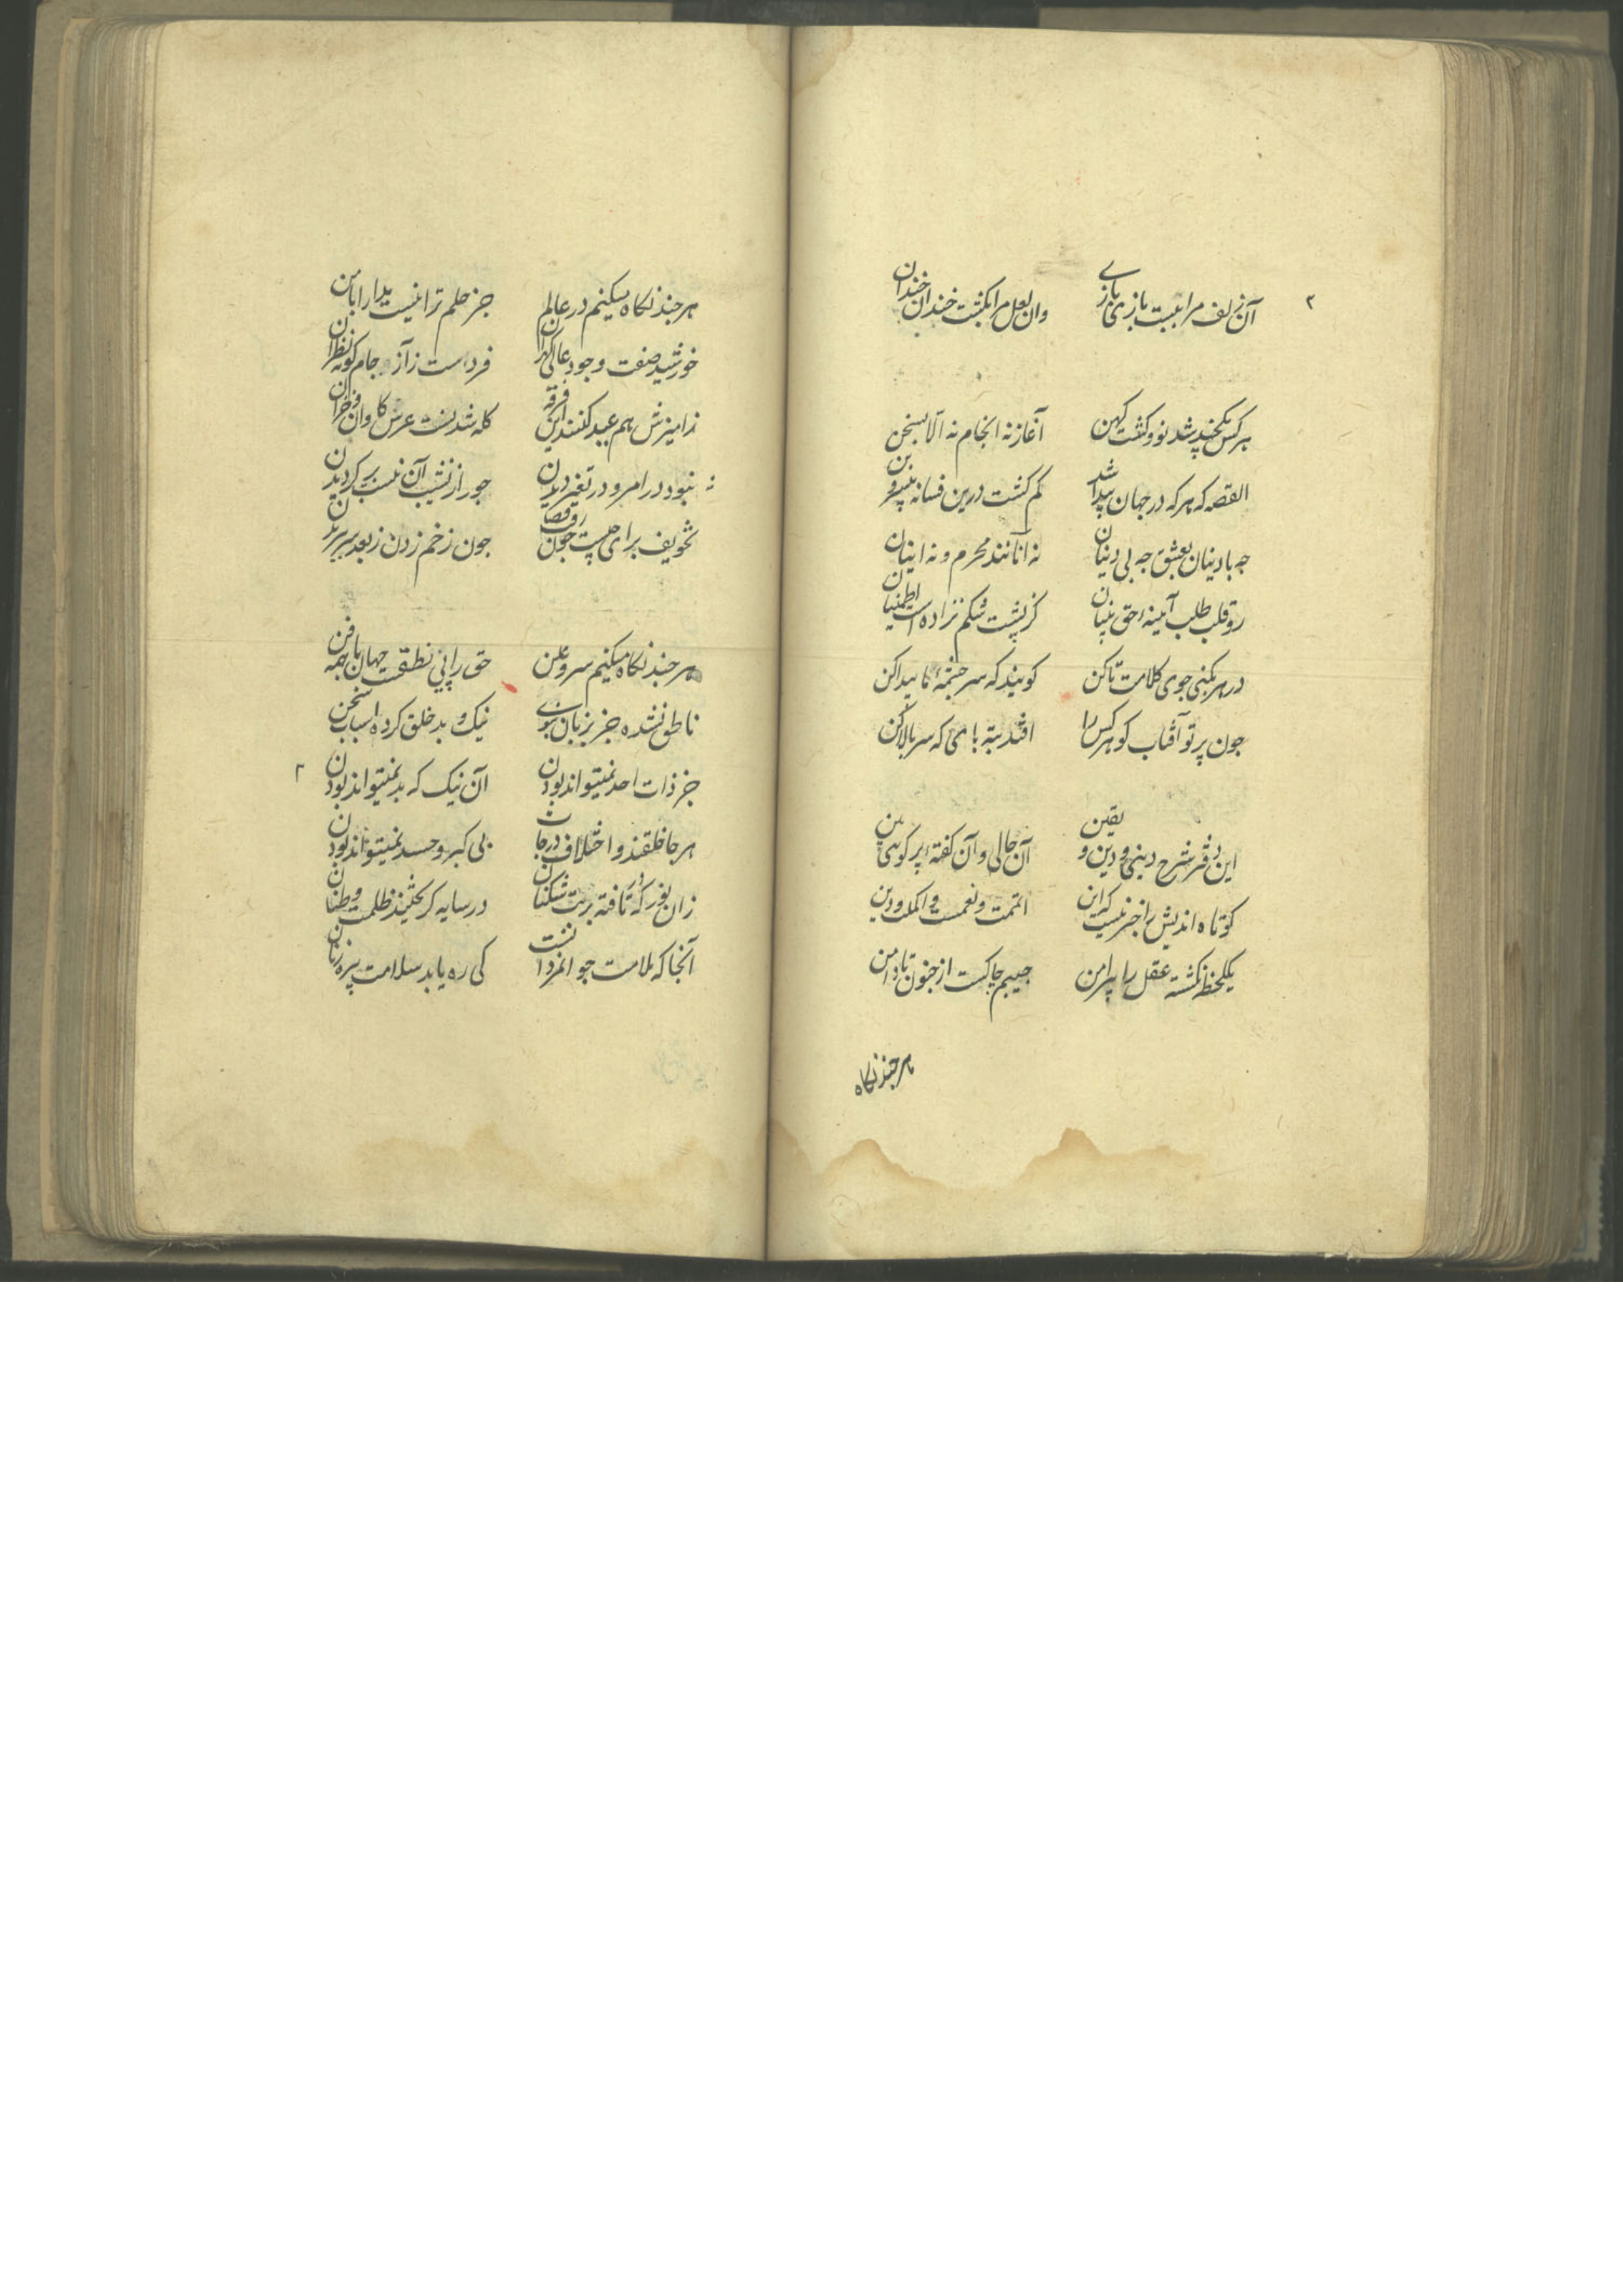 آن زلف مرا ببست بازی بازی
وان لعل مرا بکشت خندان خندان
هر کس یکچند شد نو و کشت کهن
آغاز نه انجام نه الا سخن
القصه که هر که در جهان پیدا شد
کم کشت درین فسانه بی سر و بن
چه با دینان بعشق چه بی دینان
نه آنانند محرم و نه اینان
رو قلب طلب آینه حق بینان
کز پشت شکم نزاده است
در هر
جوی کلامت تا کن
کویند که سر چشمه
پیدا کن
چون پرتو آفتاب کو هر کس را
افتد
که سر بالا کن
این دفتر شرح دینی و دین و یقین
آن خالی و آن کفته پر
کوتاه اندیش را خبر نیست که این
اتممت و نعمت و اکملت و دین
یکلحظه نکشته عقل را پیرامن
جیبم چاکست از جنون تا دامن
هر چند نکاه
هر چند نکاه میکنم در عالم
جز حلم ترا نیست
خورشید صفت وجود عالی کهران
فرد است ز
کوته نظران
زامیزش هم عید کنند این فرقه
کله شدنست عرس کاوان و خران
نبود در امر و در تغیر دیدن
جور از
آن
بر کردیدن
تخویف برای چیست چون
چون زخم زدن ز بعد سر
هر چند نکاه میکنم سر و علن
حق را پی نطقست جهان با همه فن
ناطق نشده جز بزبان نبوی
نیک و بد خلق کرده اسباب سخن
جز ذات احد نمیتواند بودن
آن نیک که بد نمیتواند بودن
هر جا خلقند و اختلاف درجات
بی کبر و حسد نمیتواند بودن
زان نور که تافته
بت شکنان
در سایه
ظلمت وطنان
آنجا که ملامت جوانمردانست
کی ره یابد سلامت پیره زنان